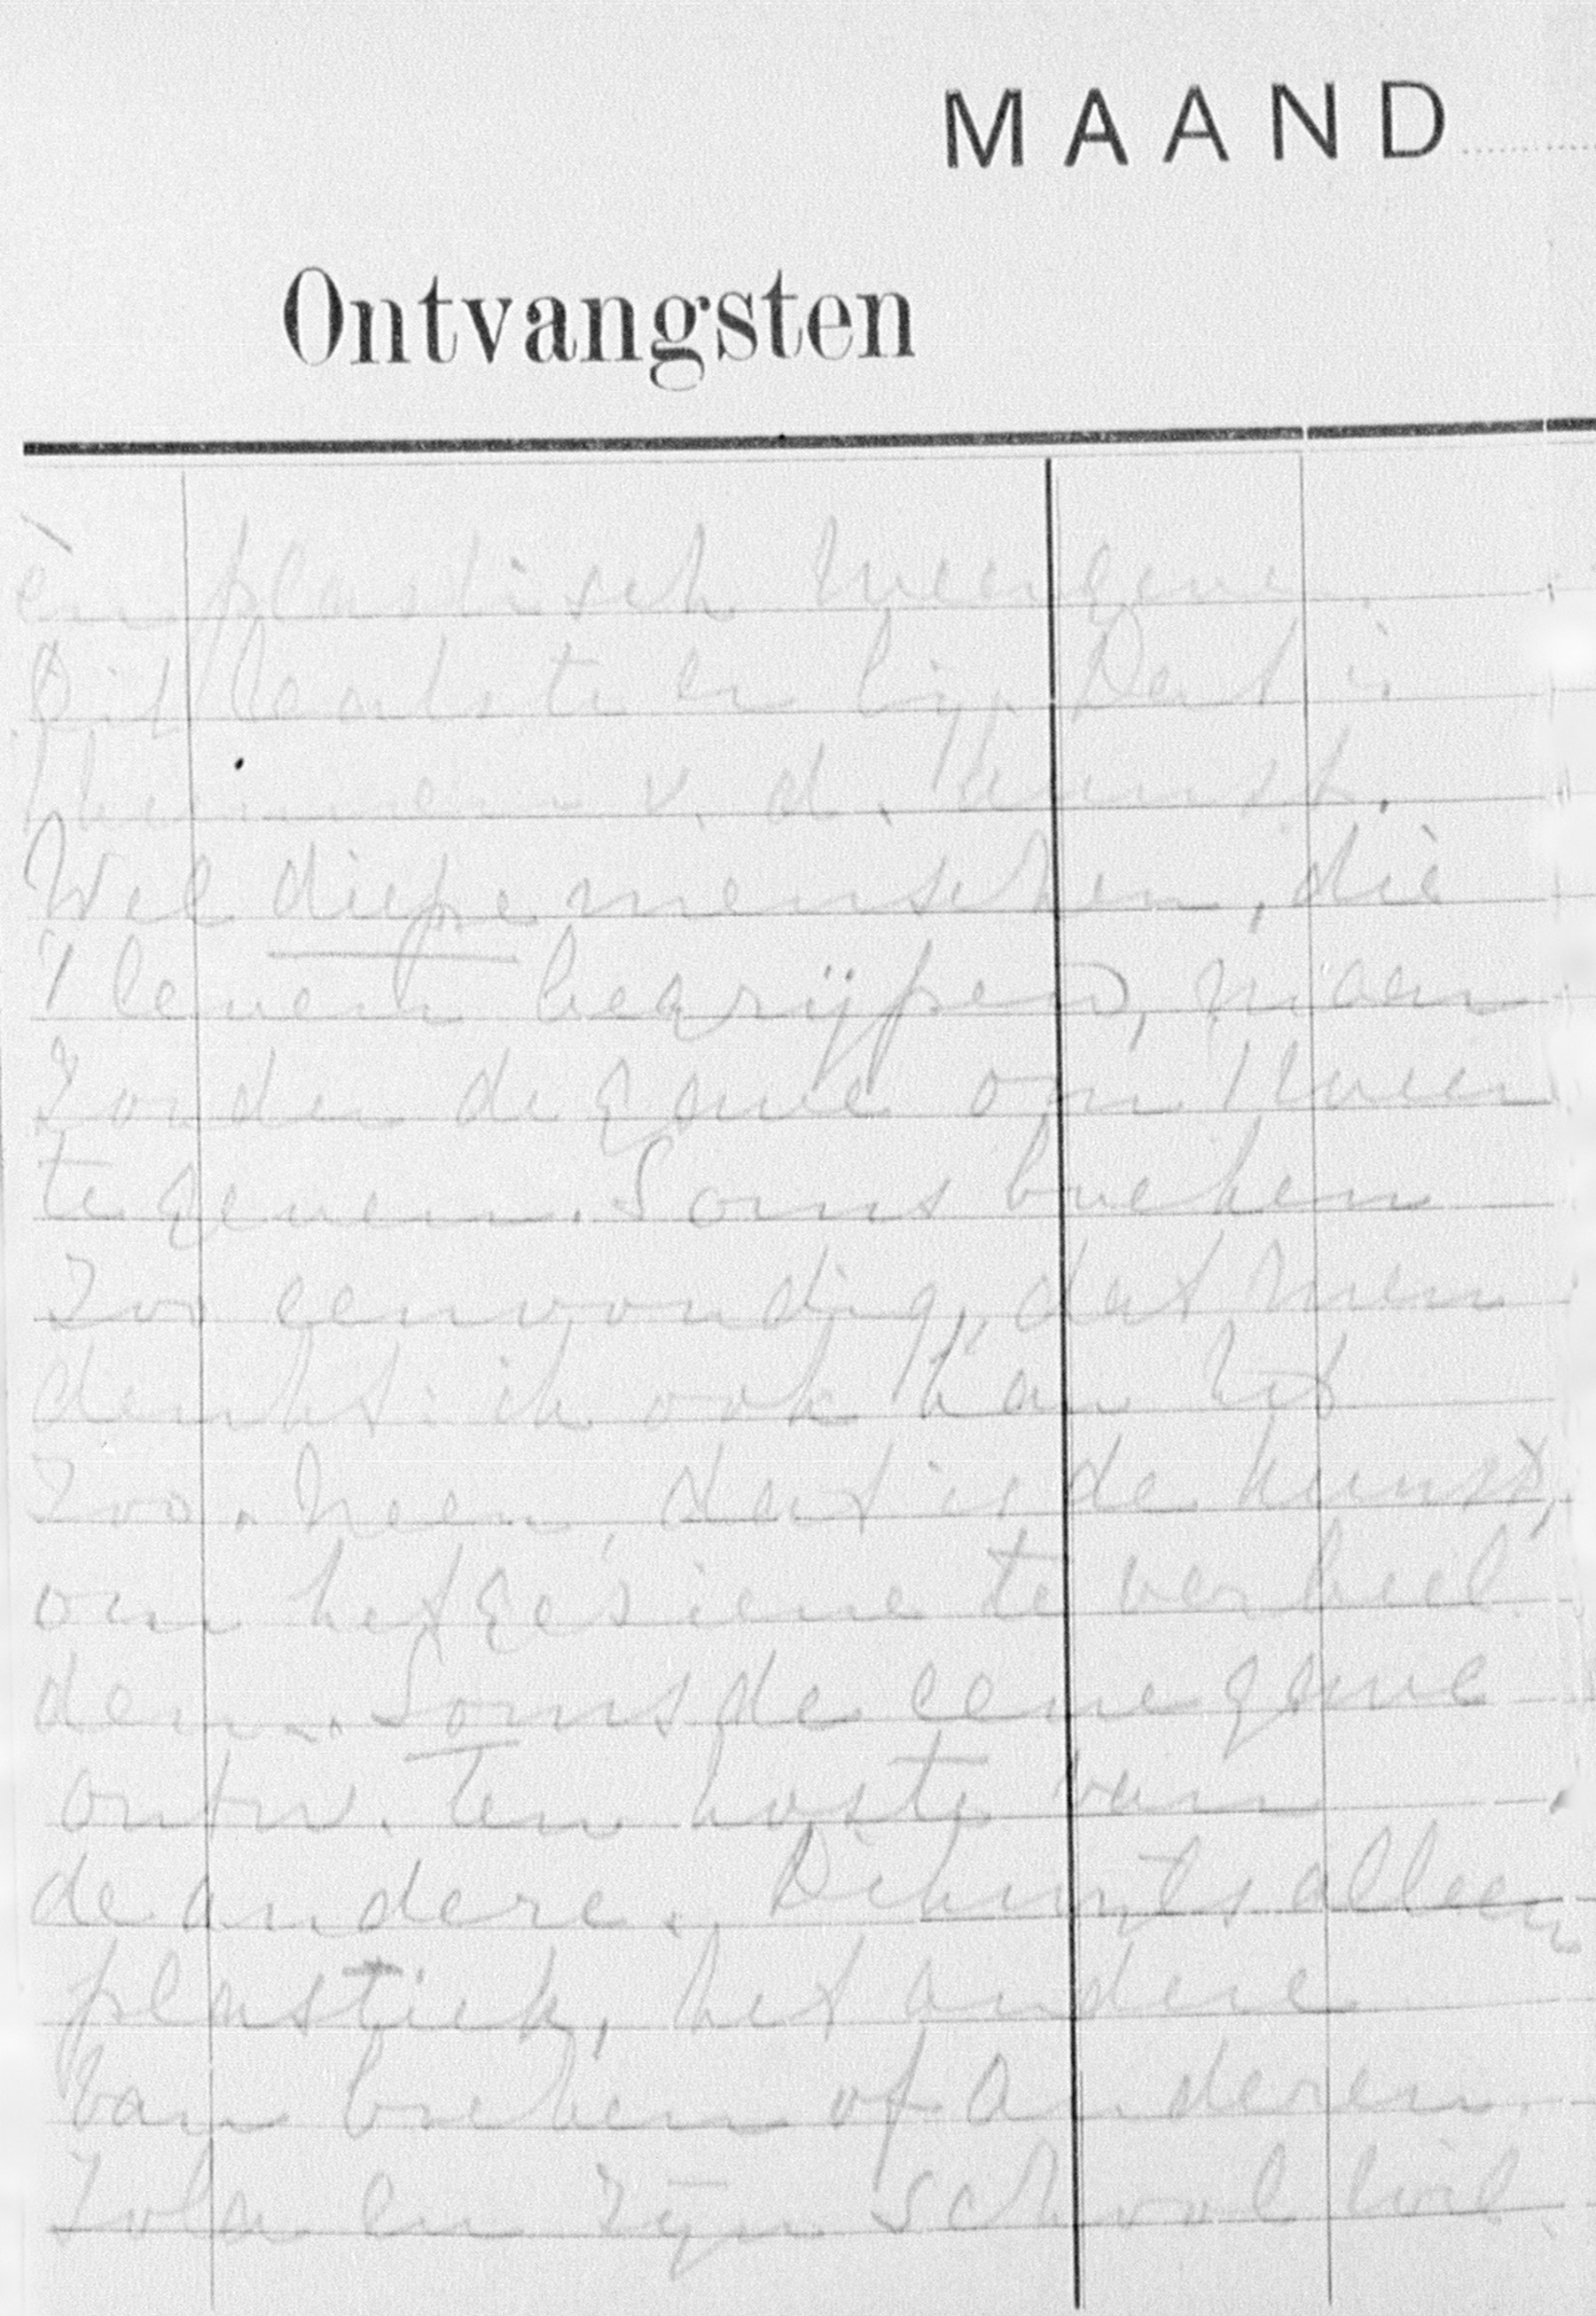 MAAND
Ontvangsten
èn plastisch weergeve.
Dit laatste er bij. Dat is
kunnen v. d. kunst.
Wel diepe menschen, die
't leven begrijpen, maar
zonder de gave om 't weer
te geven. Soms boeken
zoo eenvoudig, dat men
denkt: ik ook kan het
zoo. Neen, dat is de kunst,
om het geziene te verbeel
den. Soms de eene gave
ontw. ten koste van
de andere. Dikwijls alleen
plastiek, het andere
van boeken of anderen.
Zola en zijn school wil